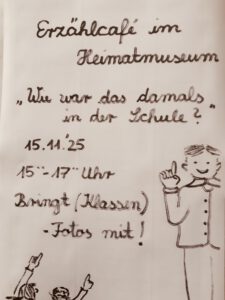 Erzählcafé im
Heimatmuseum
„Wie war das damals
in der Schule?"
15.11.'25
15⁰⁰-17⁰⁰ Uhr
Bringt (Klassen)
-Fotos mit!